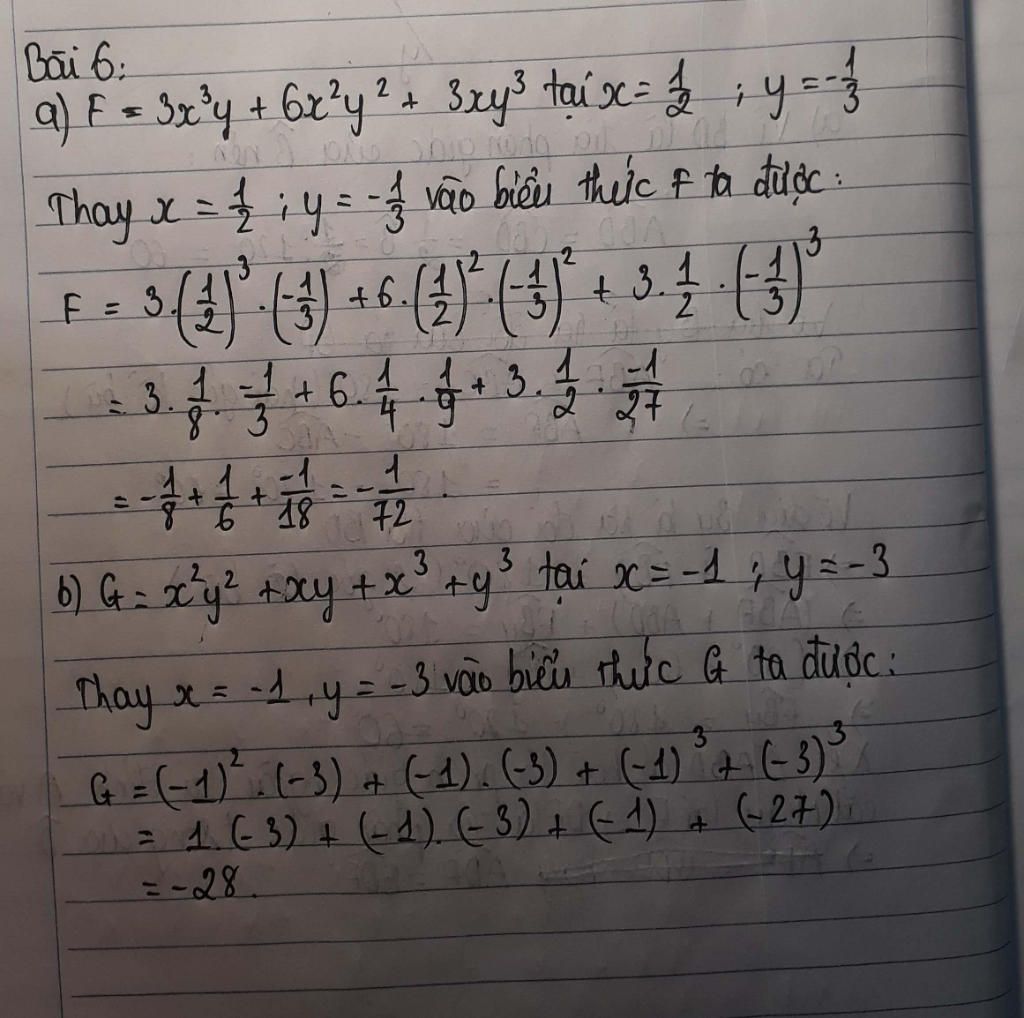 Bài 6:
a) F = 3x³y + 6x²y² + 3xy³ tại x = 1/2 ; y = -1/3
Thay x = 1/2 ; y = -1/3 vào biểu thức F ta được:
F = 3.(1/2)³.(-1/3) + 6.(1/2)².(-1/3)² + 3.1/2.(-1/3)³
= 3.1/8.-1/3 + 6.1/4.1/9 + 3.1/2.-1/27
= -1/8 + 1/6 + -1/18 = -1/72.
b) G = x²y² + xy + x³ + y³ tại x = -1 ; y = -3
Thay x = -1, y = -3 vào biểu thức G ta được:
G = (-1)².(-3) + (-1).(-3) + (-1)³ + (-3)³
= 1.(-3) + (-1).(-3) + (-1) + (-27)
= -28.